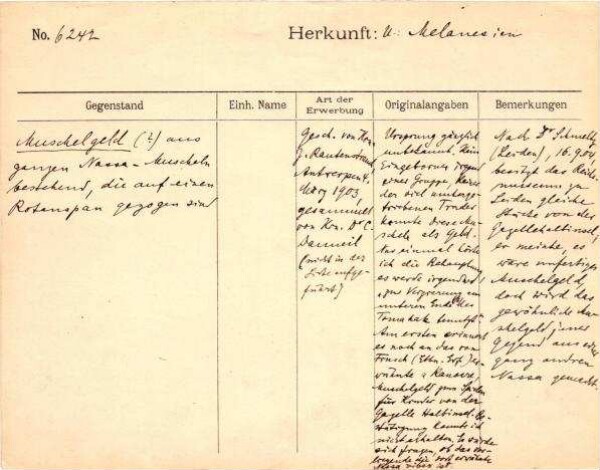 No. 6242
Herkunft: N. Melanesien
Gegenstand
Einh. Name
Art der Erwerbung
Originalangaben
Bemerkungen
Muschelgeld (?) aus
ganzen Nassa-Muscheln
bestehend, die auf einen
Rotanspan gezogen sind
Gesch. von Hrn
Rautenstrauch
Antwerpen
März 1903,
gesammelt
von Hrn. Dr C.
Danneil
(nicht in der
Liste aufge-
führt)
Ursprung gänzlich
unbekannt. Kein
Eingeborner irgend
einer Gruppe,
der viel umherge-
kannte diese Mu-
scheln als Geld.
Nur einmal hörte
ich die Behauptung
es werde irgendwo
zur Verzierung am
unteren Ende des
Tomahak benutzt
Am ersten erinnert
es noch an das von
Finsch (Ethn. Erf.) er-
wähnte
Muschelgeld zum
für Kinder von der
Gazelle Halbinsel. Be-
stätigung konnte ich
nicht erhalten. Es würde
sich fragen, ob das vor-
liegende die dort erwähnte
Nassa vibex ist
Nach Dr Schmeltz
(Leiden), 16.9.04
besitzt das Reichs-
museum zu
Leiden gleiche
Stücke von der
Gazellehalbinsel,
er meinte, es
wäre unfertiges
Muschelgeld,
doch wird das
gewöhnliche Mu-
schelgeld jener
Gegend aus einer
ganz andren
Nassa gemacht.